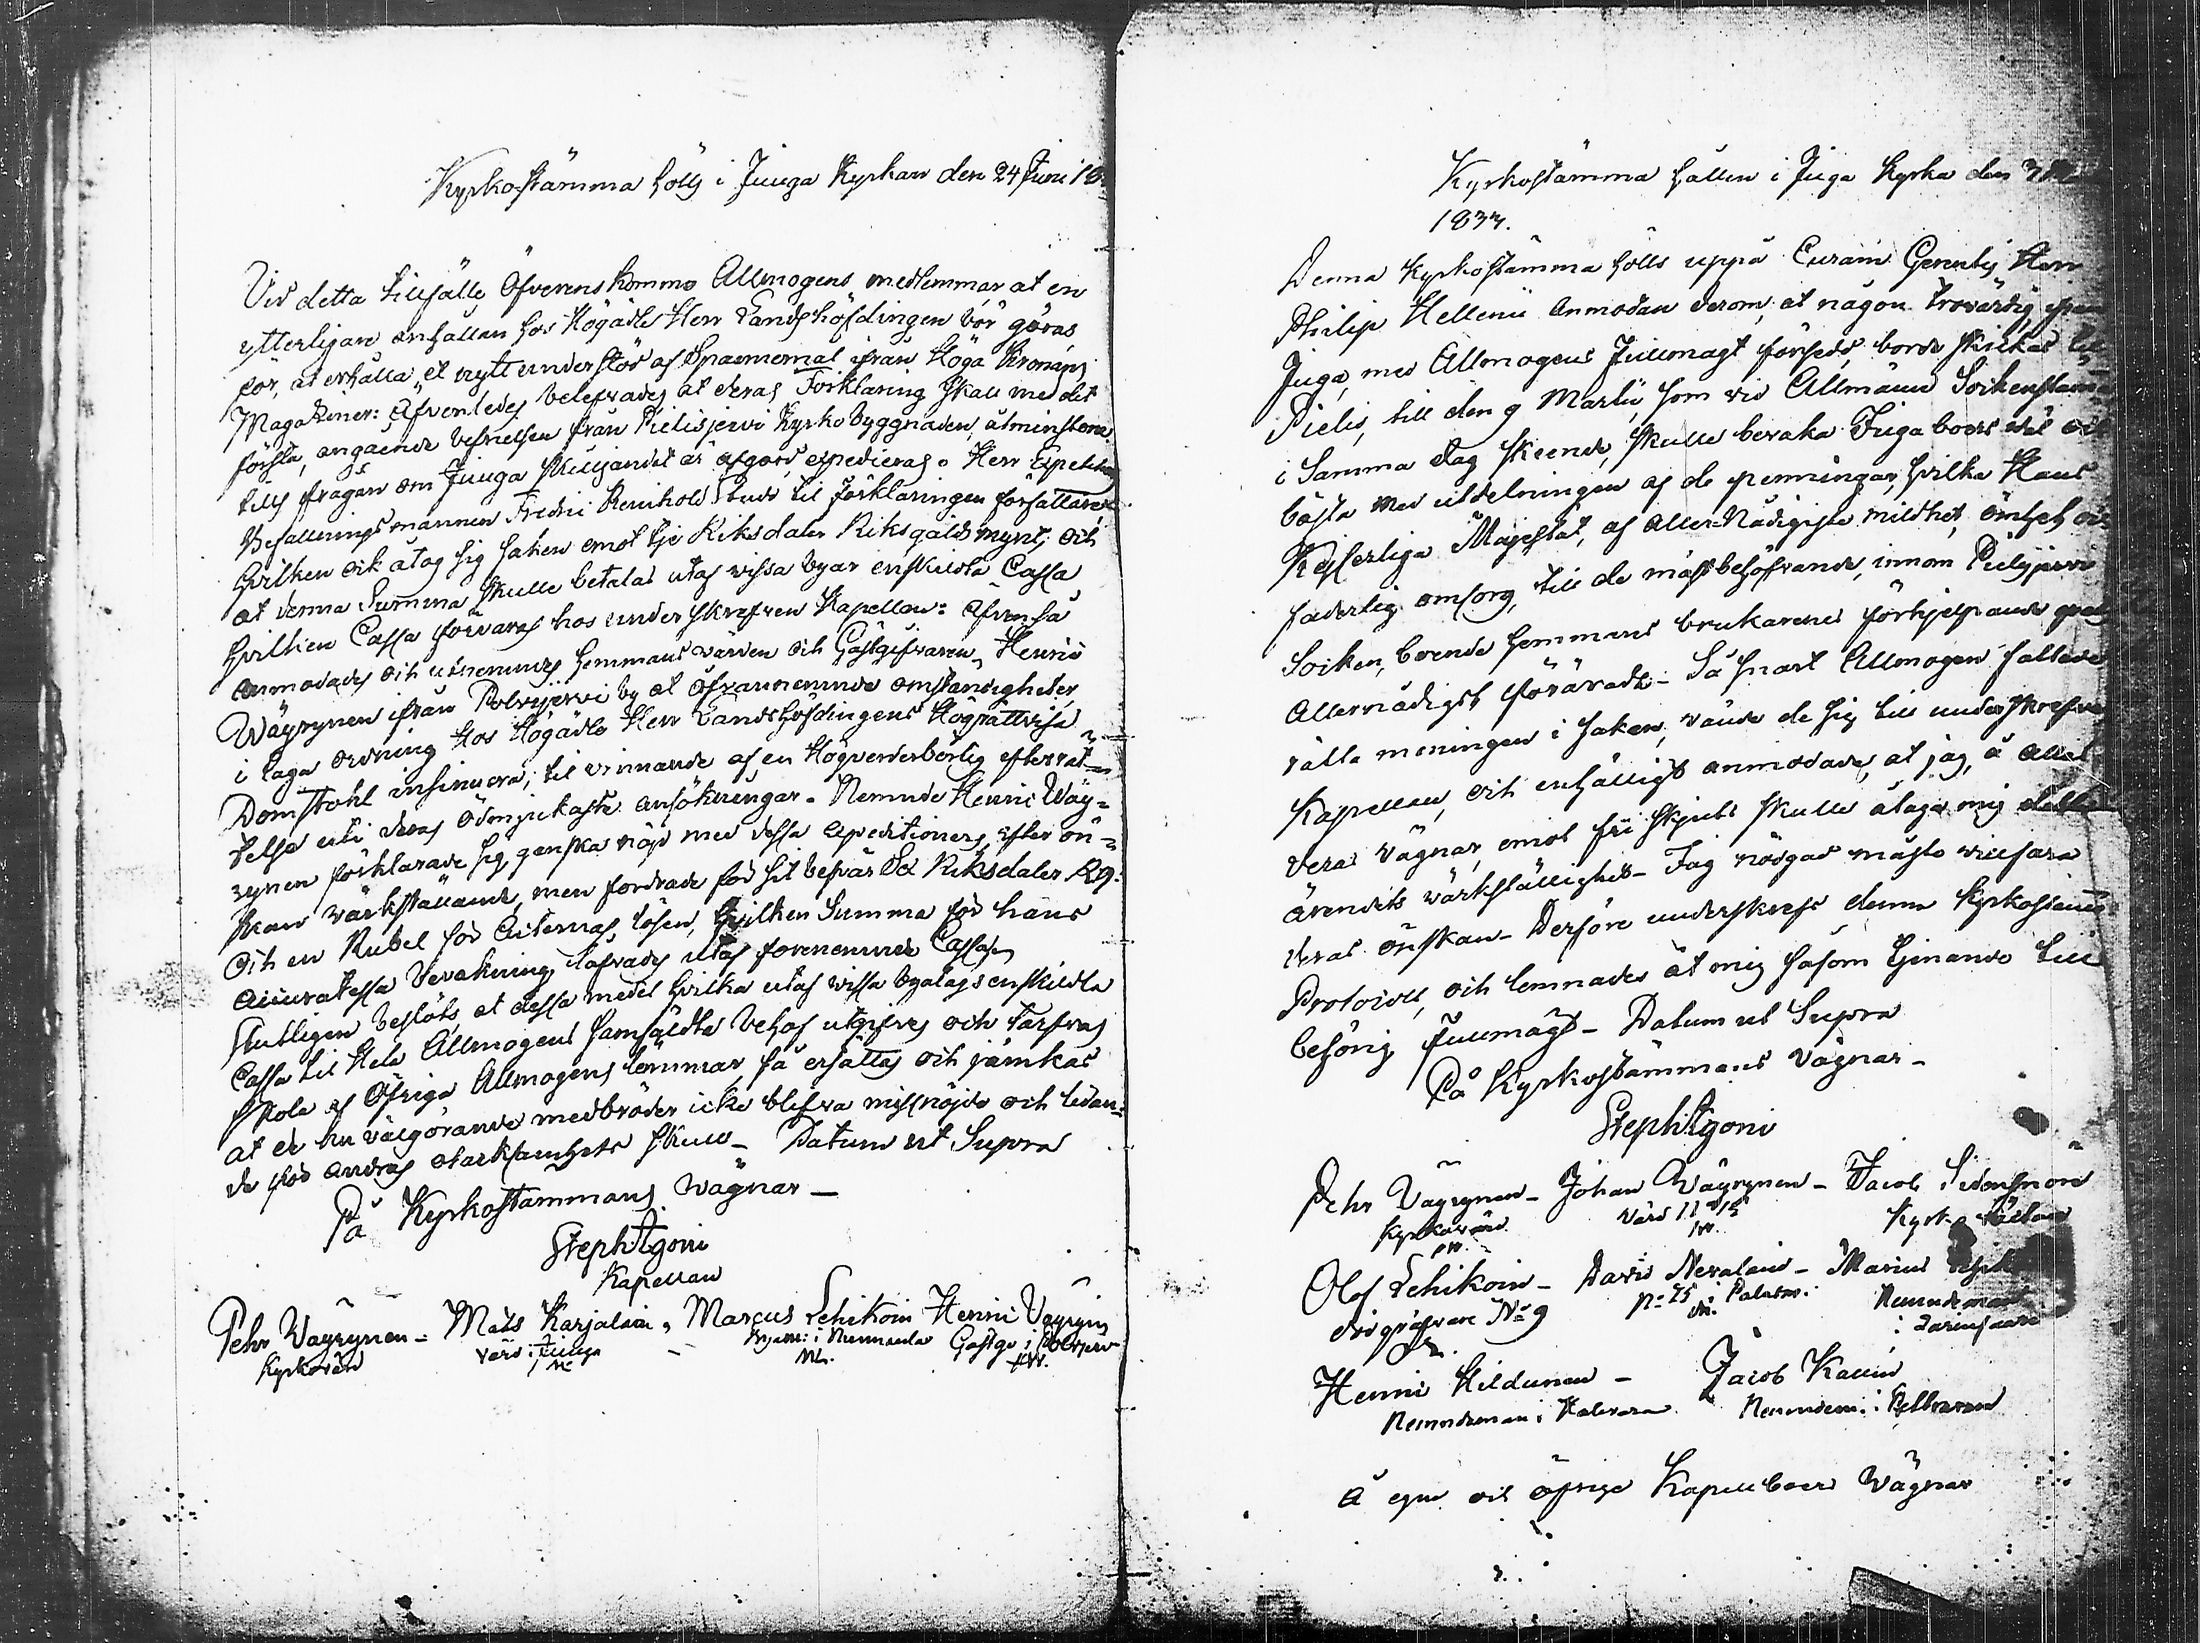 Kyrkostämma höllts i Juuga Kyrkan den 24 Juni 18
Vid detta tillfälle Öfverenskommo Allmogens medlemmar at en
ytterligare anhållan hos Högädle Herr Landshöfdingen bör göras,
för, at erhålla et nytt understöd af Spannemal ifrån Höga Kronans
Magaziner: Äfventedes belefvades at deras Förklaring skall med det
första, angående befrielsen från Pielisjervi Kyrko byggnaden, åtminstone
tills frågan om Juuga skiljandet är afgjord, expedieras. Herr
Befallningsmannen Fredric Reinhold til Förklaringen författare
hvilken ock åtog sig saken emot tje Riksdaler Riksgäldsmynt, och
at denna Summa skulle betalas utaf vissa byar enskilda Cassa
hvilken Cassa förvaras hos underskrefven Kapellan: äfvenså
anmodades och utnemndes hemmans värden och Gästgifvaren, Henric
Wäyrynen ifrån Polvijervi by at ofvannemnde omständigheter
i laga ordning hos Högädle Herr Landshöfdingens Högrättvisa
Domstohl insinuera, til vinnande af en Högvederbörlig efterrät-
telse uti deras ödmjukaste ansökningar. Nemnde Henric Wäy=
rynen förklarade sig ganska nöjd med dessa expeditioners, efter ön=
skan värkställande, men fordrade för sit besvär Sex Riksdaler Rg:
och en Rubel för Acternas lösen, hvilken Summa för hans
beräkning lofvades utaf förenemnde Cassa,
Slutligen beslöts, at dessa medel hvilka utaf vissa byalags enskildta
Cassa til Hela Allmogens samfäldta behof utgifves och tarfvas
skola af Öfriga Allmogens lemmar, få ersättas och jämkas
at de nu välgörande medbröder icke blifva missnöjde och lidan=
de för andras skull - Datum ut Supra
På Kyrkostämmans vägnar -
Steph Agoni
Kapellan
Pehr Wäyrynen - Mats Karjalain, Marcus Lehikoin Henric Väyryin
Kyrkovärd värd i Juuga i Nunnanla Gästgi i Polvijerv

Kyrkostämma hållen i Juga Kyrka den 3
1833.
Denna Kyrkostämma hölls uppå Curam Gerentis Herr
Philip Hellenii anmodan derom, at någon trovärdig ifrån
Juga, med Allmogens Fullmagt försedd, borde skickas till
Pielis, till den 9 Martii, som vid Allmänn Sockenstämma
i Samma dag skeende, skulle bevaka Juga boers väl och
bästa med utdelningen af de penningar, hvilka Hans
Kejserliga Majestät, af Aller-Nådigste mildhet, ömhet och
faderlig omsorg, till de mäst behöfvande, innom Pielisjervi
Socken, boende hemmans brukarenes förhjelpande
Allernådigst förärade - Så snart Allmogen fattade
rätta meningen i saken, vände de sig till underskrefne
Kapellan, och enhälligt anmodade, at jag, å allas
deras vägnar, emot fri skjuts skulle åtaga mig detta
ärendets värkställighet - Jag nödgad måste villfara
deras önskan - Derföre underskrefs denna Kyrkostäms
Protocoll, och lemnades åt mig såsom tjenande till
behörig Fullmagt - Datum ut Supra
På Kyrkostämmans vägnar -
Steph Agoni
Pehr Väyrynen - Johan Wäyrynen - Jacob
Kyrkovärd värd
Olof Lehikoin - David Nevalain -
No 9 No 25 i Nemndeman
Henric Hildunen - Jacob
Nemndeman i Nemndem: i
Å egne och öfrige Kapellboers vägnar